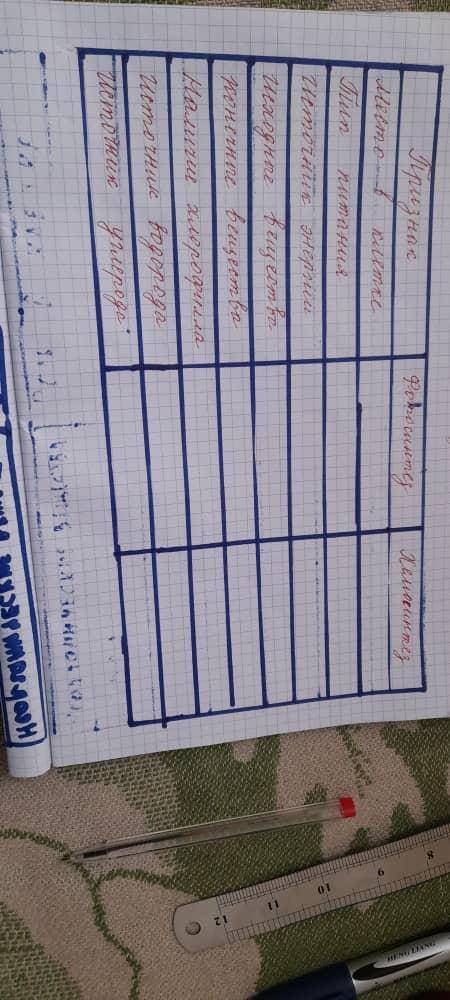 Признак Фотосинтез Хемосинтез
Место в клетке
Тип питания
Источник энергии
Исходные вещества
Конечные вещества
Наличие хлорофилла
Источник водорода
Источник углерода.
НЕОРГАНИЧЕСКИЕ
8 9 10 11 12
HENG LIANG